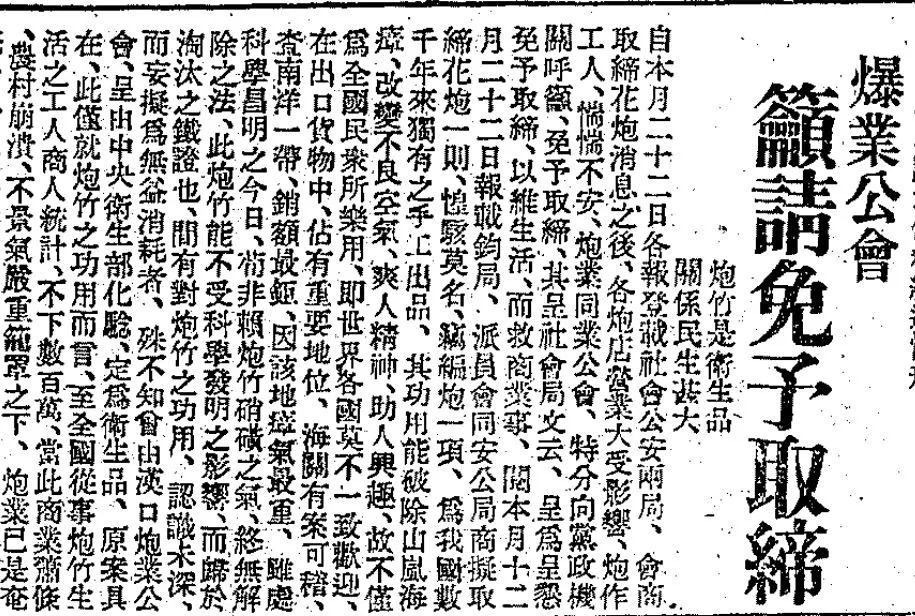 爆業公會
籲請免予取締
炮竹是衛生品
關係民生甚大
自本月二十二日各報登載社會公安兩局、會商
取締花炮消息之後、各炮店營業大受影響、炮作
工人、惴惴不安、炮業同業公會、特分向黨政機
關呼籲、免予取締、其呈社會局文云、呈爲呈懇
免予取締、以維生活、而救商業事、閱本月二十
月二十二日報職鈞局、派員會同安公局商擬取
締花炮一則、惶駭莫名、竊編炮一項、爲我國數
千年來獨有之手工出品、其功用能破除山嵐海
瘴、改變不良空氣、爽人精神、助人興趣、故不僅
爲全國民衆所樂用、即世界各國莫不一致歡迎、
在出口貨物中、佔有重要地位、海關有案可稽、
查南洋一帶、銷額最鉅、因該地瘴氣最重、雖處
科學昌明之今日、苟非賴炮竹硝磺之氣、終無解
除之法、此炮竹能不受科學發明之影響、而歸於
淘汰之鐵證也、間有對炮竹之功用、認識未深、
而妄擬爲無益消耗者、殊不知曾由漢口炮業公
會、呈由中央衛生部化驗、定爲衛生品、原案具
在、此僅就炮竹之功用而言、至全國從事炮竹生
活之工人商人統計、不下數百萬、當此商業蕭條
、農村崩潰、不景氣嚴重籠罩之下、炮業已是奄